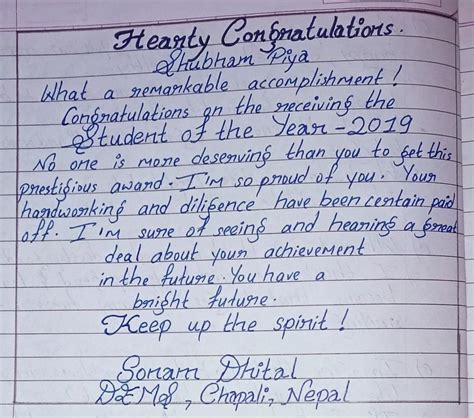 Hearty Congratulations.
Shubham Piya
What a remarkable accomplishment!
Congratulations on the receiving the
Student of the Year - 2019
No one is more deserving than you to get this
prestigious award. I'm so proud of you. Your
handworking and diligence have been certain paid
off. I'm sure of seeing and hearing a great
deal about your achievement
in the future. You have a
bright future.
Keep up the spirit!
Sonam Dhital
DEMS, Chapali, Nepal